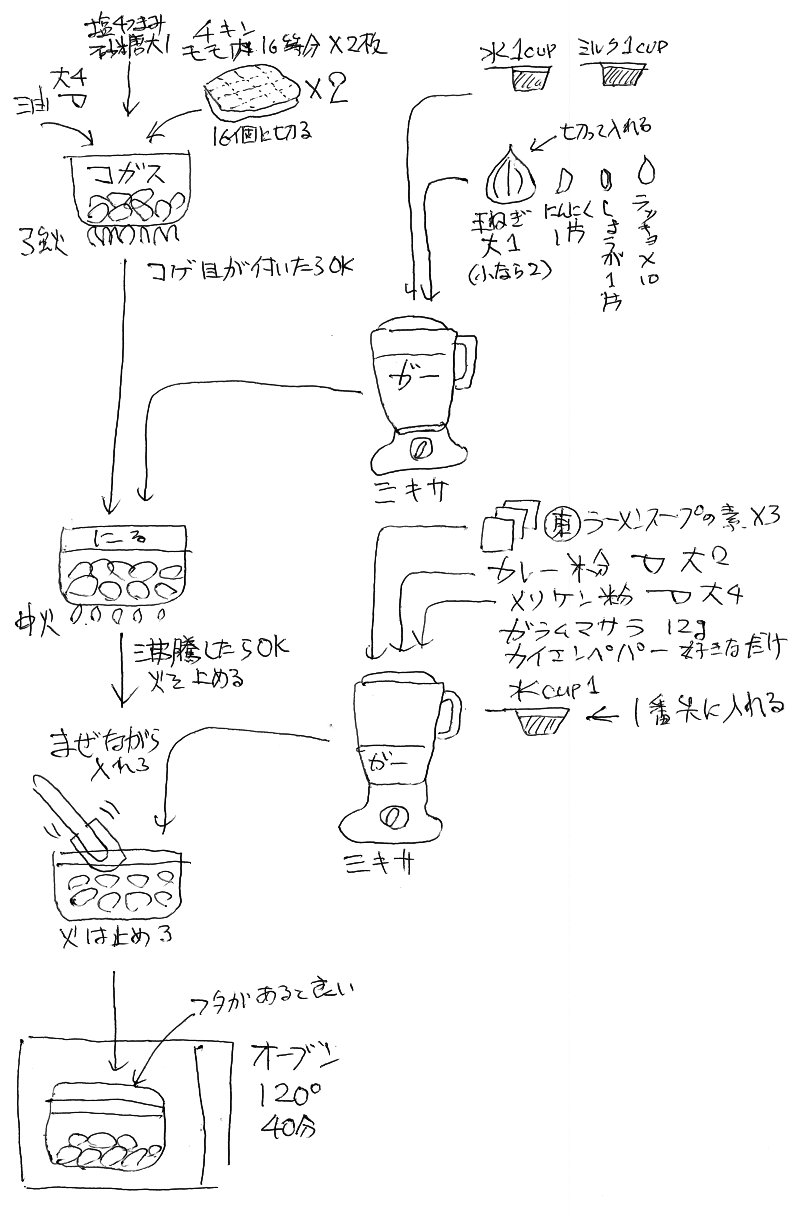 塩4つまみ
砂糖大1
チキン
モモ肉16等分×2枚
大4
ヨutil
×2
16個に切る
コガス
強火
コゲ目が付いたらOK
水1cup
ミルク1cup
切って入れる
玉ねぎ
大1
(小なら2)
にんにく
1片
しょうが1片
ラッキョ×10
ガー
ミキサ
にる
中火
沸騰したらOK
火を止める
東 ラーメンスープの素×3
カレー粉 大2
メリケン粉 大4
ガラムマサラ 12g
カイエンペパー 好きなだけ
水cup1
1番先に入れる
まぜながら
入れる
ガー
ミキサ
火は止める
フタがあると良い
オーブン
120°
40分